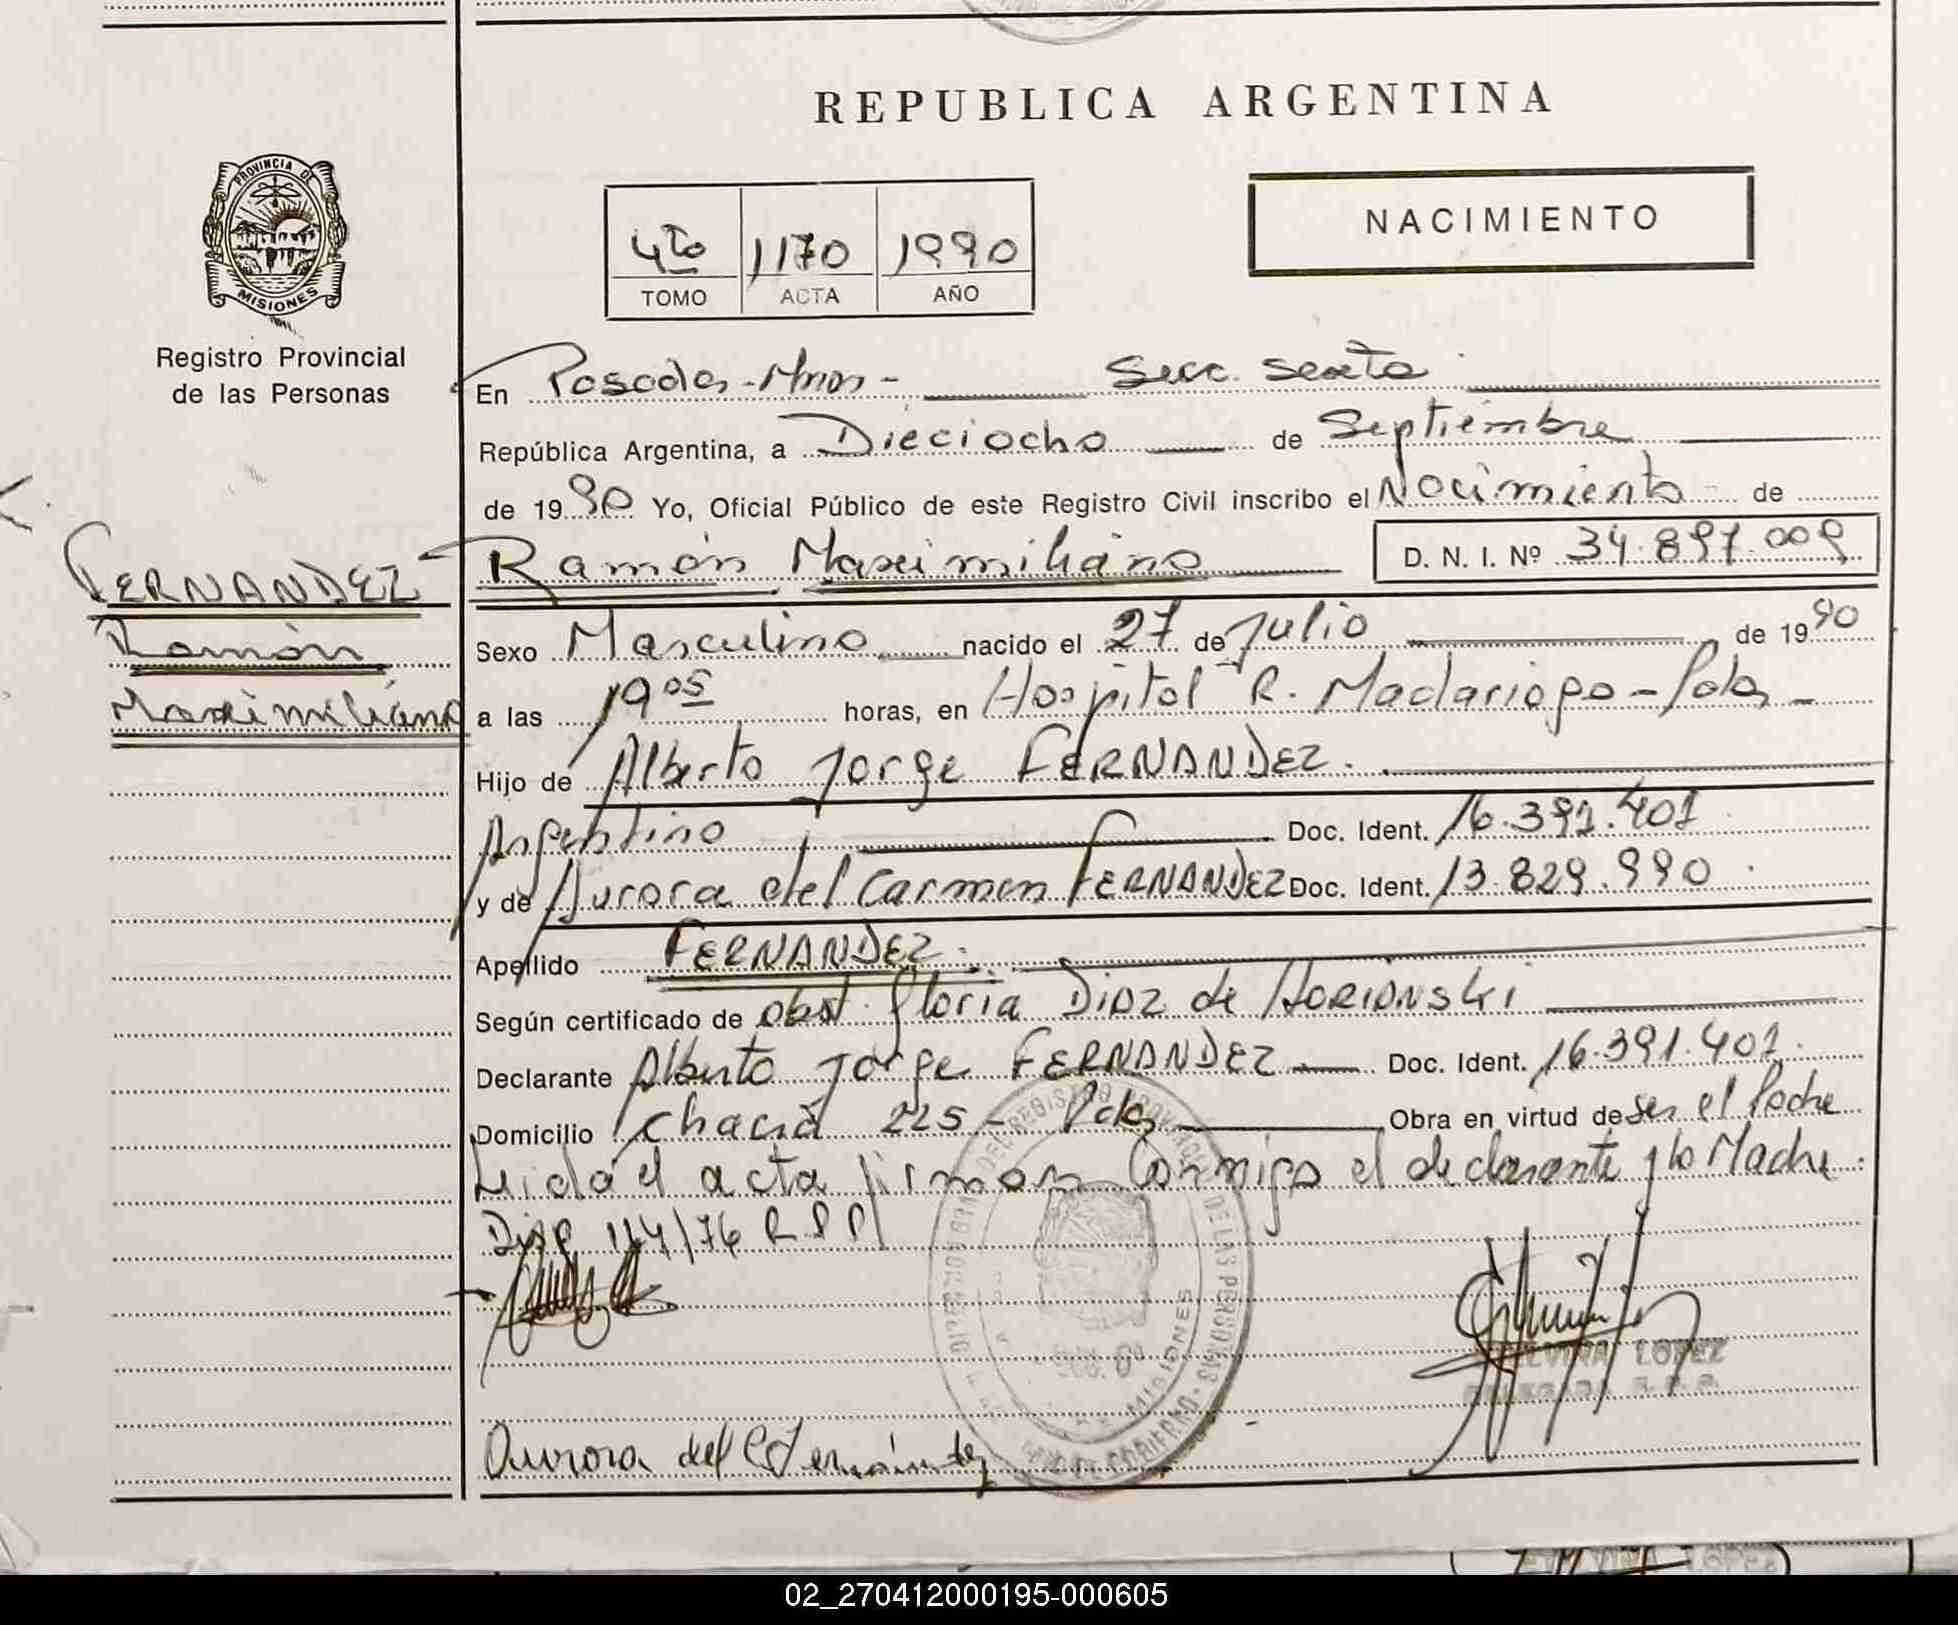 REPUBLICA ARGENTINA
PROVINCIA DE
MISIONES
Registro Provincial
de las Personas
NACIMIENTO
4to 1170 1990
TOMO ACTA AÑO
En Posadas-Mnes- Secc. sexta
República Argentina, a Dieciocho de Septiembre
de 1990 Yo, Oficial Público de este Registro Civil inscribo el Nacimiento de
Ramón Maximiliano D. N. I. Nº 34.897.009
FERNANDEZ
Ramón
Maximiliano
Sexo Masculino nacido el 27 de Julio de 1990
a las 19 05 horas, en Hospital R. Madariaga - Pdas -
Hijo de Alberto Jorge FERNANDEZ.
Argentino Doc. Ident. 16.391.401
y de Aurora del Carmen FERNANDEZ Doc. Ident. 13.829.990
Apellido FERNANDEZ.
Según certificado de obst. Gloria Diaz de Horianski
Declarante Alberto Jorge FERNANDEZ Doc. Ident. 16.391.401.
Domicilio 225 - Pdas Obra en virtud de ser el Padre
Leida el acta firman conmigo el declarante y la Madre.
Disp 114/76 R.P.P
LOPEZ
Aurora del C Fernández
MISIONES
02_270412000195-000605